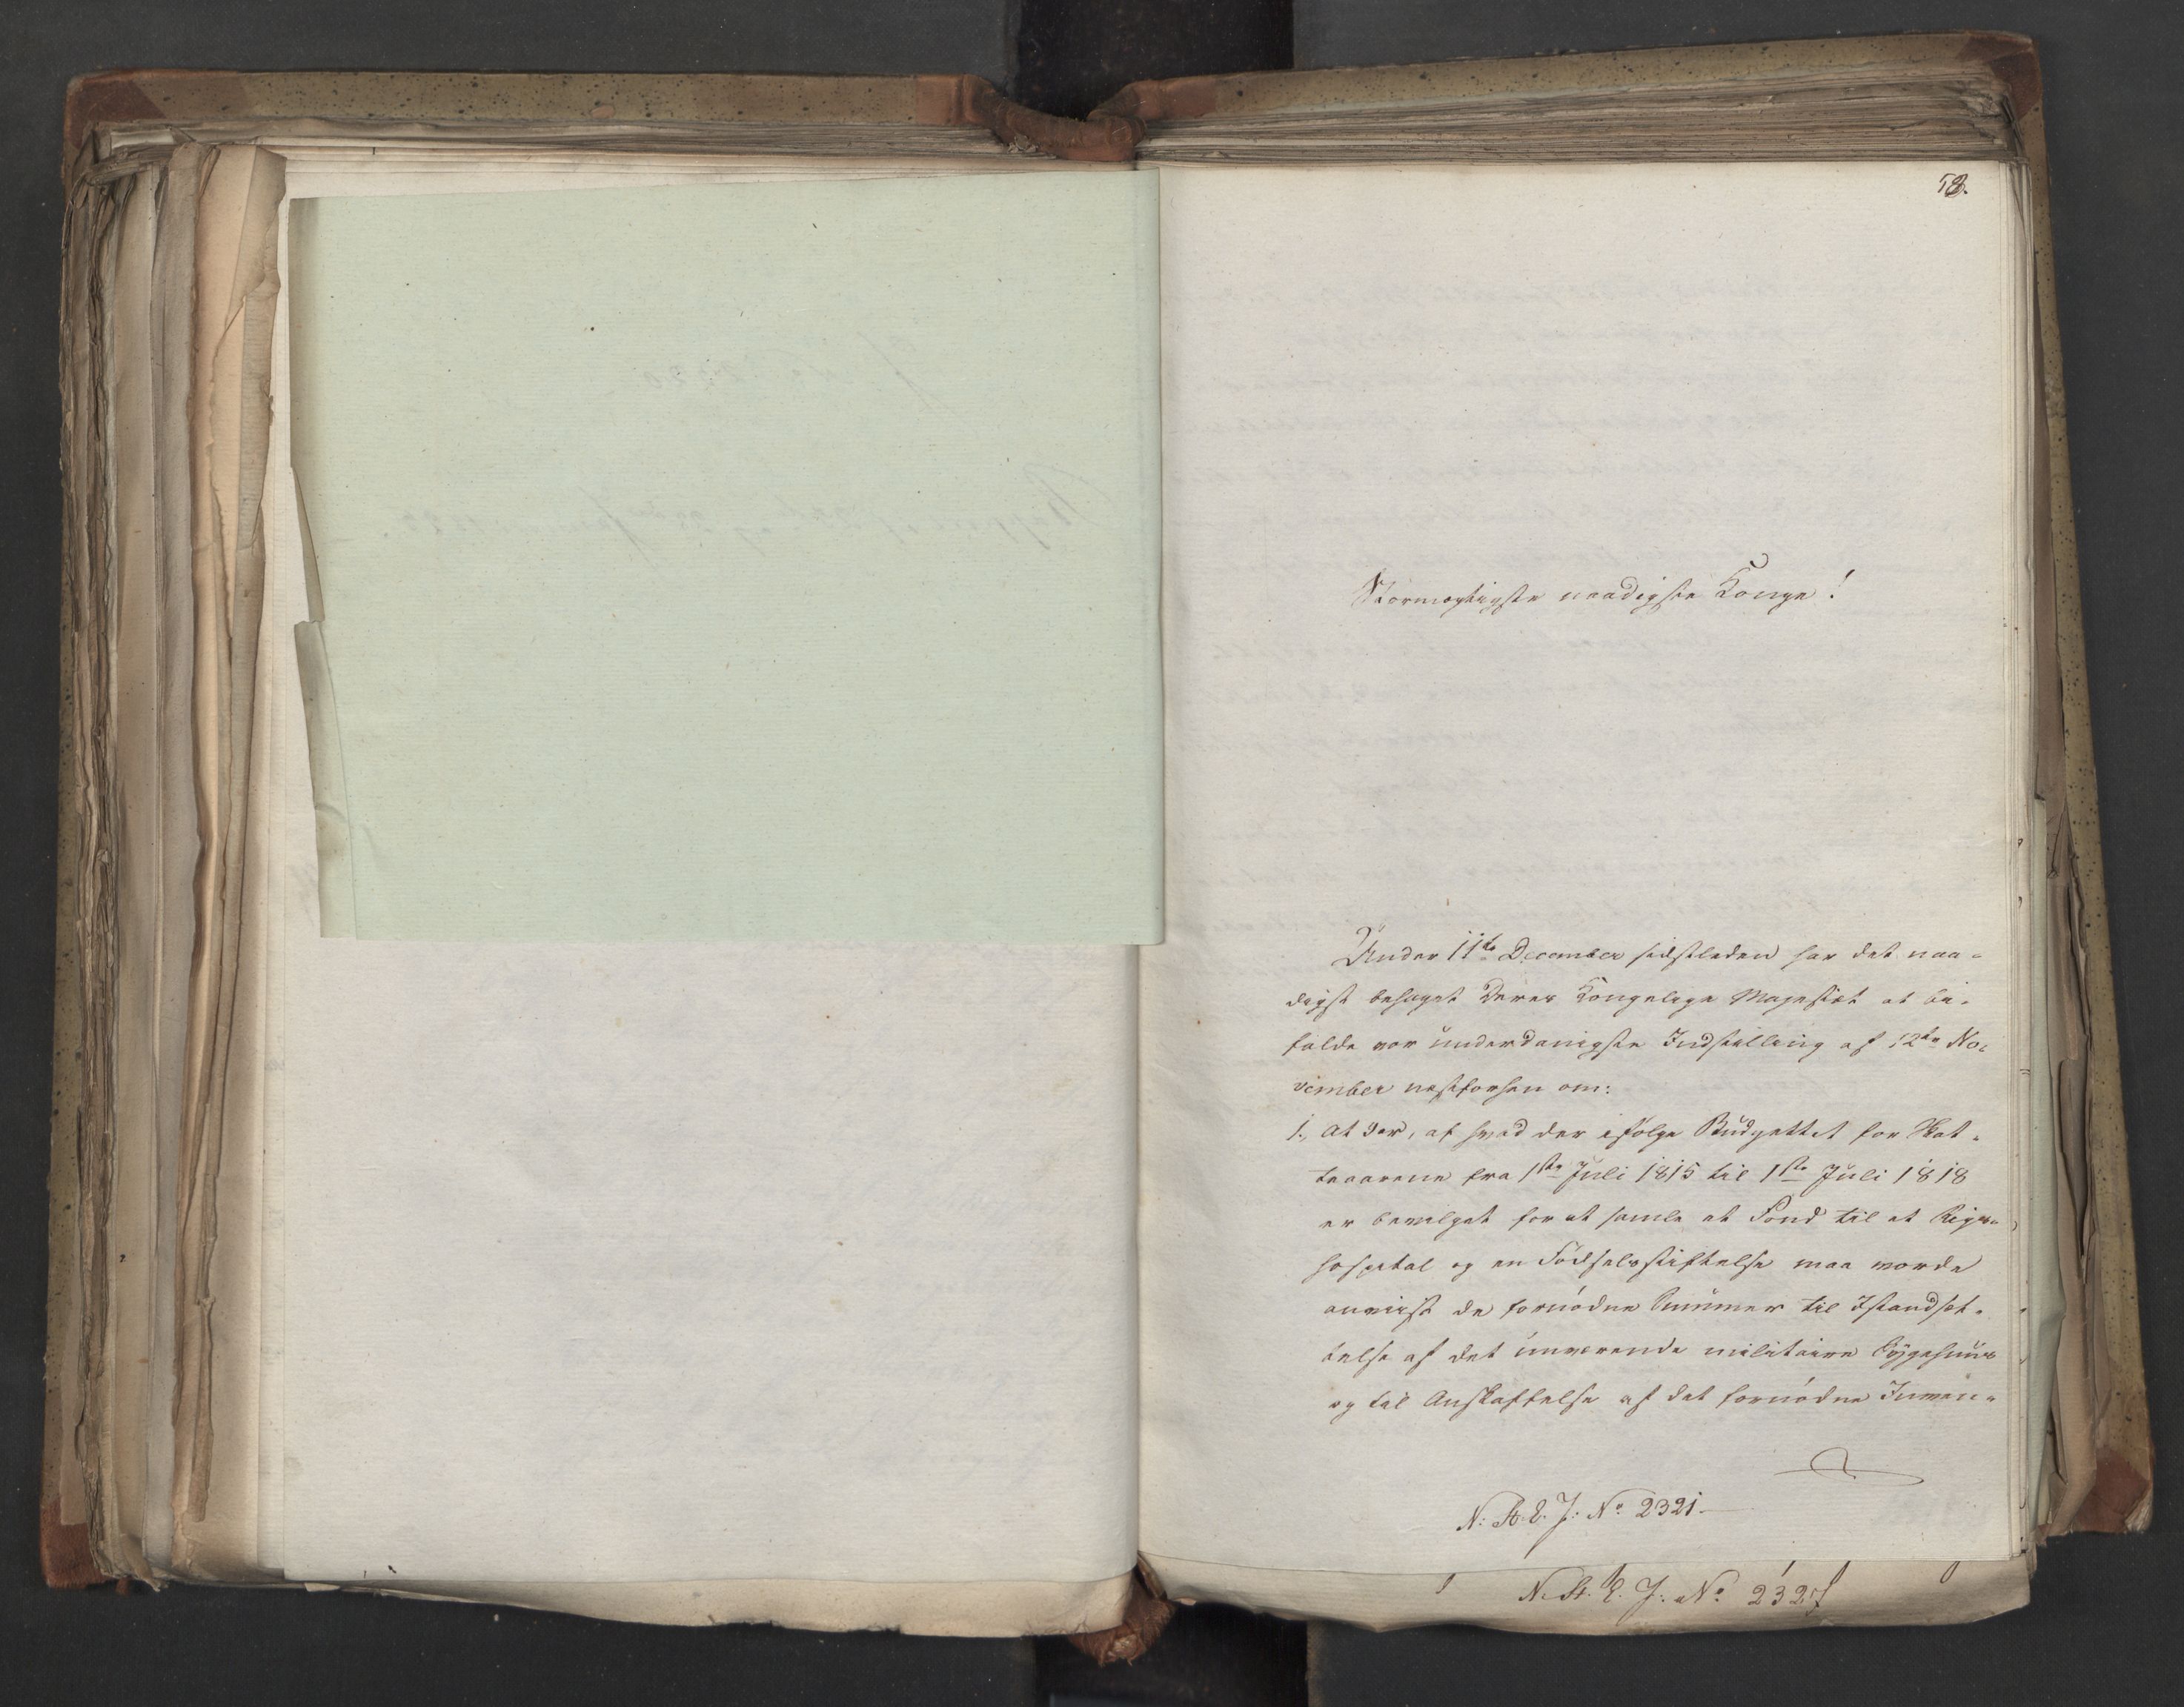 58.
Stormægtigste naadigste Konge!
Under 11te December sidstleden har det naa-
digst behaget Deres Kongelige Majestæt at bi-
falde vor underdanigste Indstilling af 12te No-
vember næstforhen om:
1., At der, af hvad der ifølge Budgettet for Skat-
teaarene fra 1ste Juli 1815 til 1ste Juli 1818
er bevilget for at samle et Fond til et Rigs-
hospital og en Fødselsstiftelse maa vorde
anviist de fornødne Summer til Istandsæt-
telse af det nuværende militaire Sygehuus
og til Anskaffelse af det fornødne Inven-
N: St. E. J: No 2321
N. St. E. J: No 2327